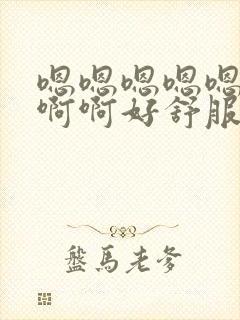 嗯嗯嗯嗯嗯
啊啊好舒服
盤馬老爹